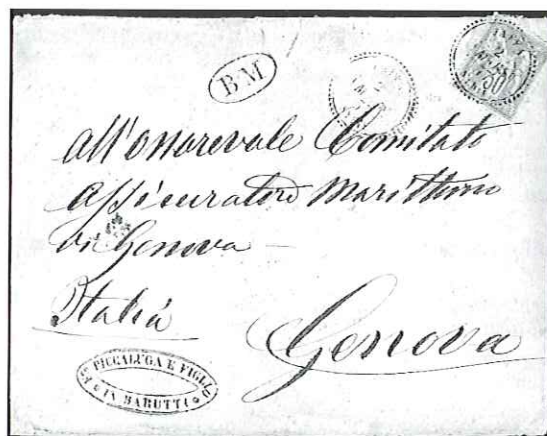 BM
30
all'onorevole Comitato
assicuratore Marittimo
di Genova
Italia
Genova
PICCALUGA E FIGLIO
IN BARUTTI